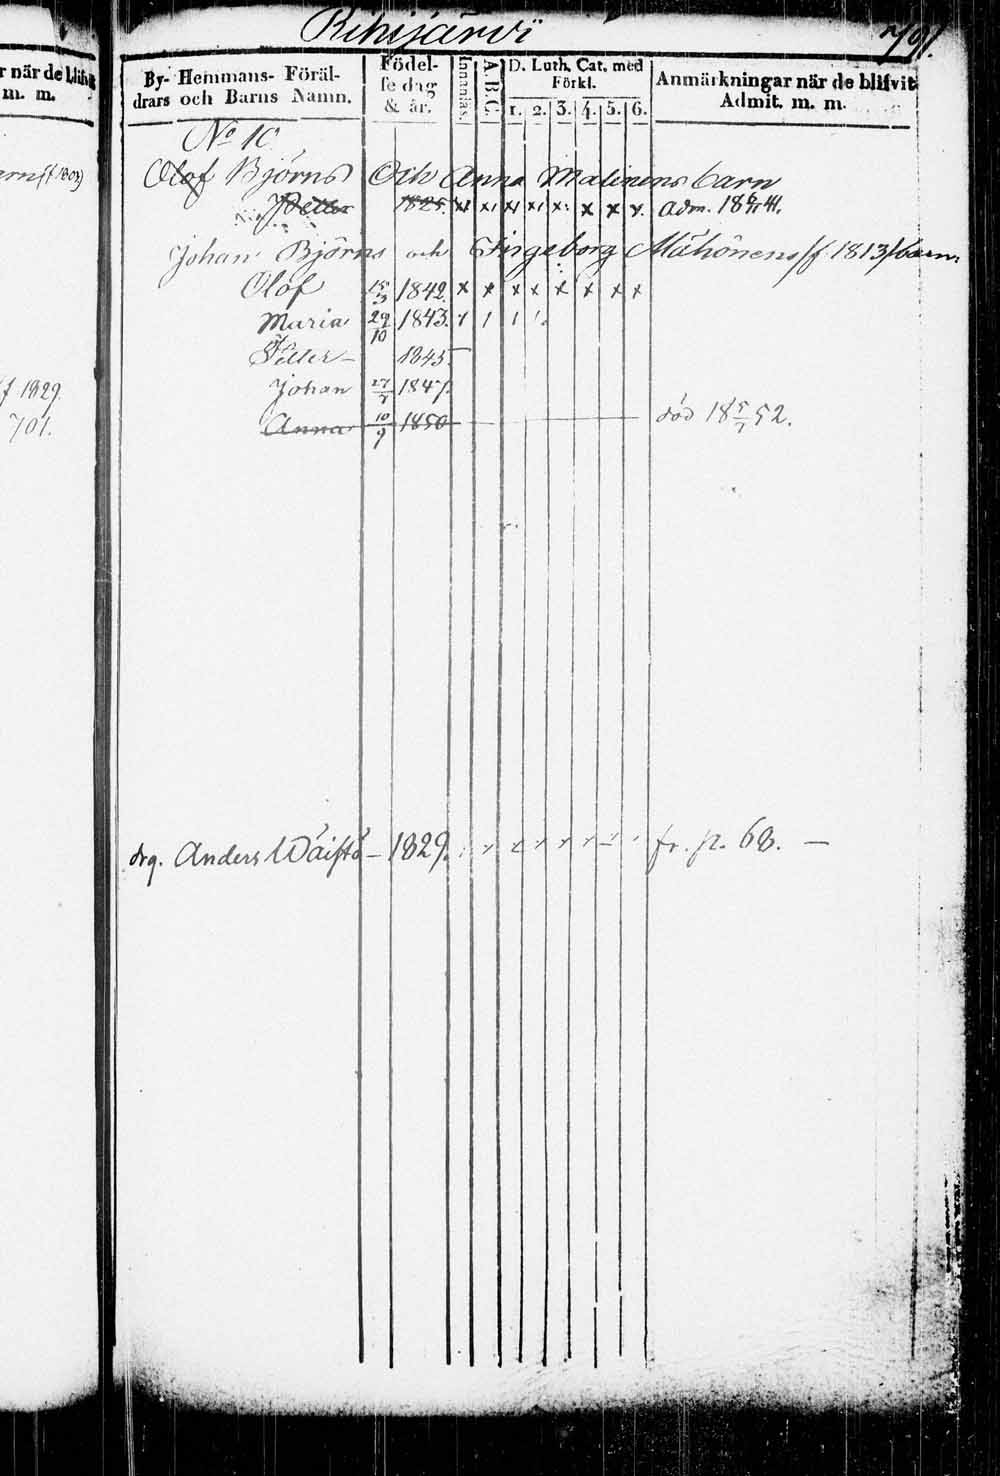 Rihijärvi 791.
r när de blifvit
m. m.
By- Hemmans- Föräl-
drars och Barns Namn.
Födel-
se dag
& år.
Innanläs
A. B. C.
D. Luth. Cat. med
Förkl.
1. 2. 3. 4. 5. 6.
Anmärkningar när de blifvit
Admit. m. m.
No 10
Olof Björns Och Anna Malinens barn
Petter 1825. x x x x x x x x adm. 18 41.
Johan Björns och Ingeborg Mähönens /f. 1813/ barn.
Olof 15/3 1842. x x x x x x x x
Maria 29/10 1843.
Petter – 1845
Johan 27/7 1847.
Anna 10/9 1850 död 18 5/7 52.
f 1829.
701.
drg. Anders Wäistö – 1829. fr. p. 68. –